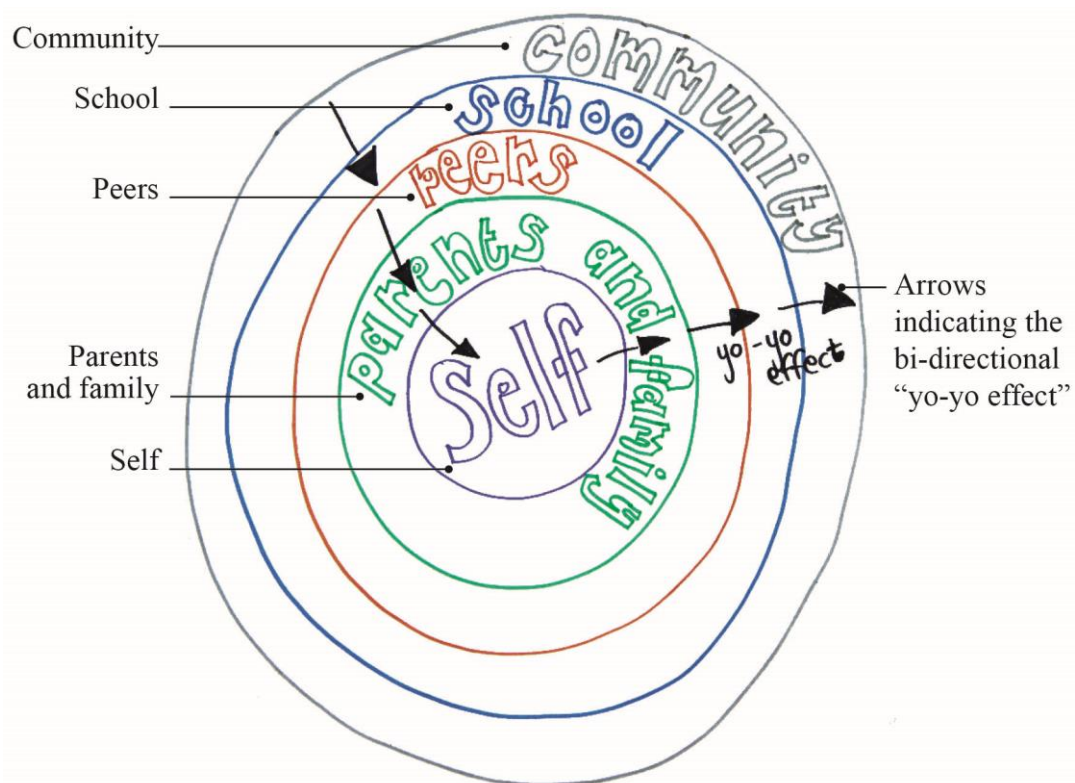 Community
School
Peers
Parents
and family
Self
community
school
peers
parents and family
Self
yo-yo
effect
Arrows
indicating the
bi-directional
“yo-yo effect”